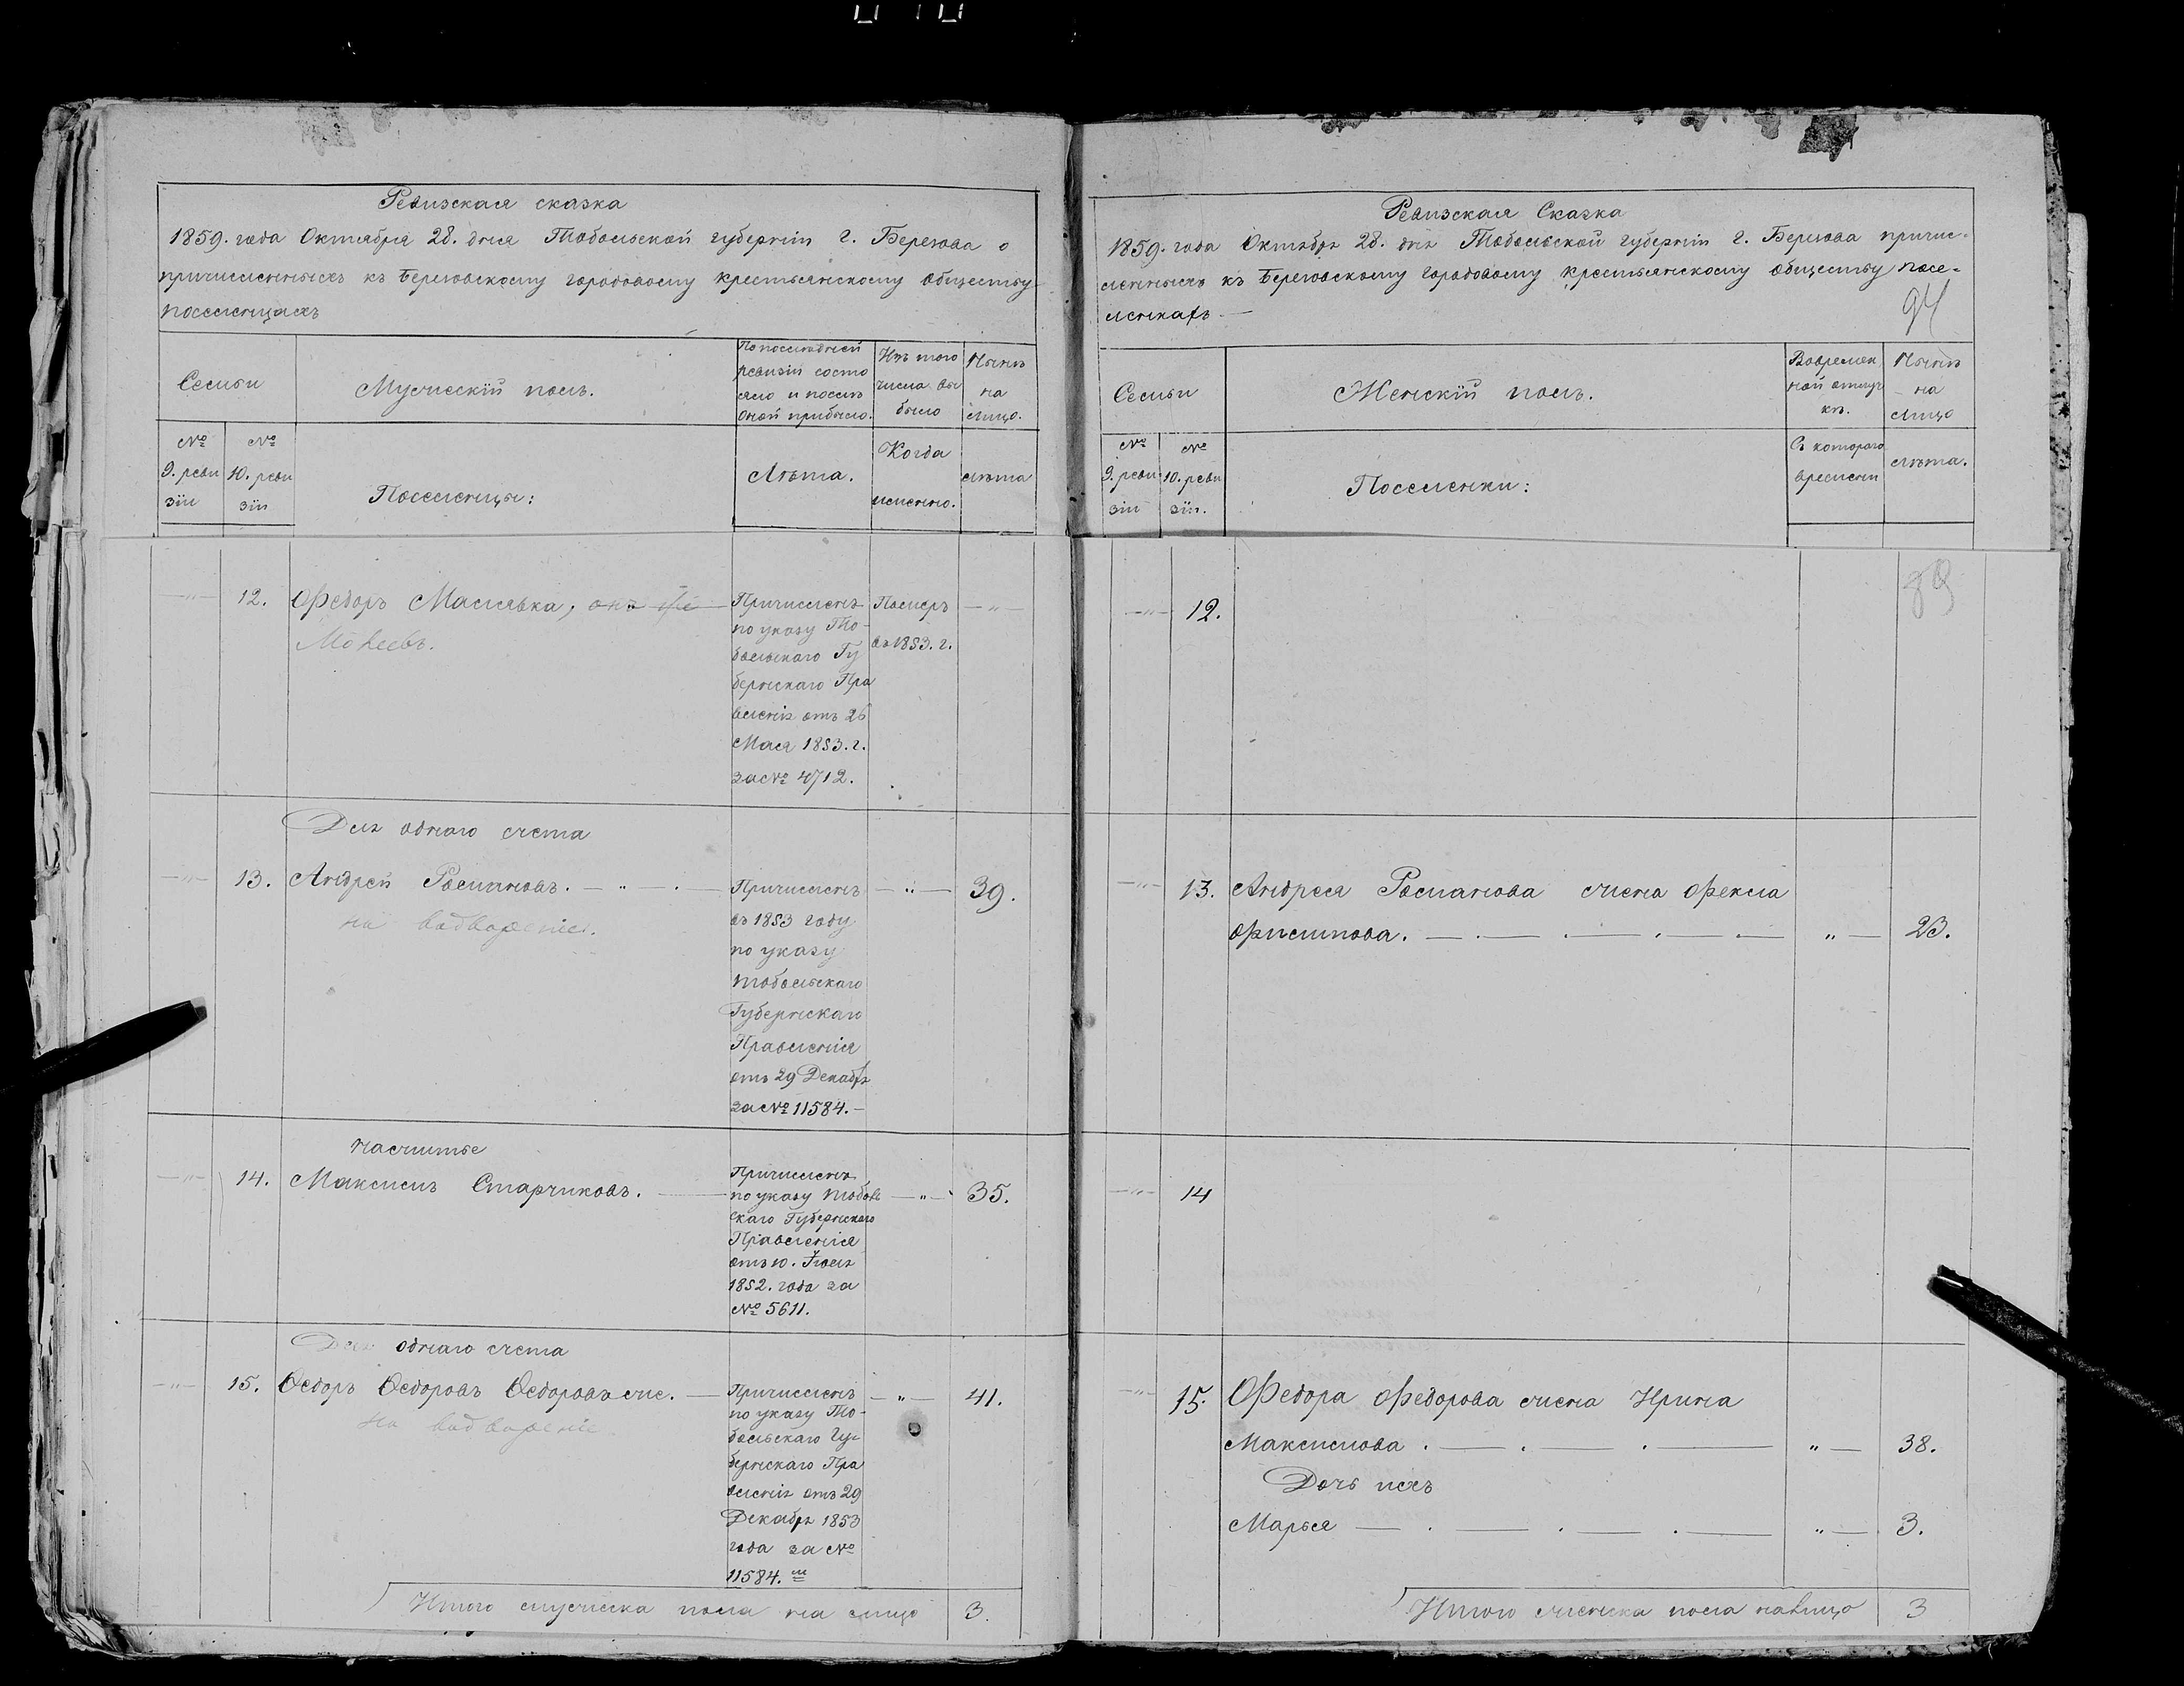 Ревизская сказка
1859. года Октября 28. дня Тобольской губернiи г. Березова о
причисленныхъ къ Березовскому городовому крестьянскому обществу
поселенцахъ
Семьи
Мужескiй полъ.
По последней
ревизiи состо
яло и после
оной прибыло.
Изъ того
числа вы
было
Нынѣ
на
лицо.
№
9. реви
зiи
№
10. реви
зiи
Поселенцы:
Лѣта.
Когда
именно.
лѣта
12.
Федоръ Малявка, онъ же
Мокеевъ.
Причисленъ
по указу То-
больскаго Гу
бернскаго Пра
вленiя отъ 26
Мая 1853. г.
за № 4712.
Померъ
въ 1853. г.
Для однаго счета
13.
Андрей Романовъ.
на водворенiи.
Причисленъ
въ 1853 году
по указу
тобольскаго
Губернскаго
Правленiя
отъ 29 Декабря
за № 11584.
39.
14.
Максимъ Старчиковъ.
Причисленъ
по указу тоболь
скаго Губернскаго
Правленiя
отъ 10. Iюля
1852. года за
№ 5611.
35.
Для однаго счета
15.
Ѳедоръ Ѳедоровъ Ѳедоровъ же.
на водворенiе
Причисленъ
по указу То-
больскаго Гу-
бернскаго Пра
вленiя отъ 29
Декабря 1853
года за №
11584.
41.
Итого мужеска пола на лицо
3.
Ревизская Сказка
1859. года Октября 28. дня Тобольской губернiи г. Березова причис-
ленныхъ къ Березовскому городовому крестьянскому обществу посе-
ленкахъ
94
Семьи
Женскiй полъ.
Вовремен
ной отлуч
кѣ.
Нынѣ
на
лицо
№
9. реви
зiи
№
10. реви
зiи.
Поселенки:
Съ котораго
времени
лѣта.
89
12.
13.
Андрея Романова жена Фекла
Филипова.
23.
14
15.
Федора Федорова жена Ирина
Максимова.
38.
Дочь ихъ
Марья
3.
Итого женска пола налицо
3